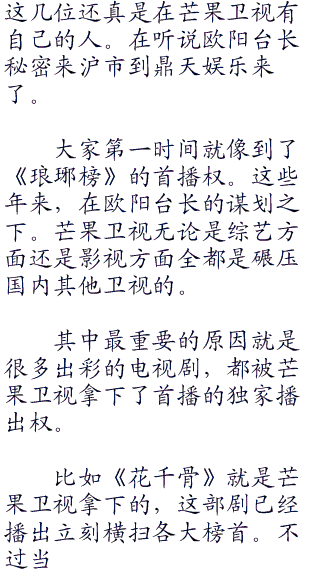 这几位还真是在芒果卫视有
自己的人。在听说欧阳台长
秘密来沪市到鼎天娱乐来
了。
大家第一时间就像到了
《琅琊榜》的首播权。这些
年来，在欧阳台长的谋划之
下。芒果卫视无论是综艺方
面还是影视方面全都是碾压
国内其他卫视的。
其中最重要的原因就是
很多出彩的电视剧，都被芒
果卫视拿下了首播的独家播
出权。
比如《花千骨》就是芒
果卫视拿下的，这部剧已经
播出立刻横扫各大榜首。不
过当